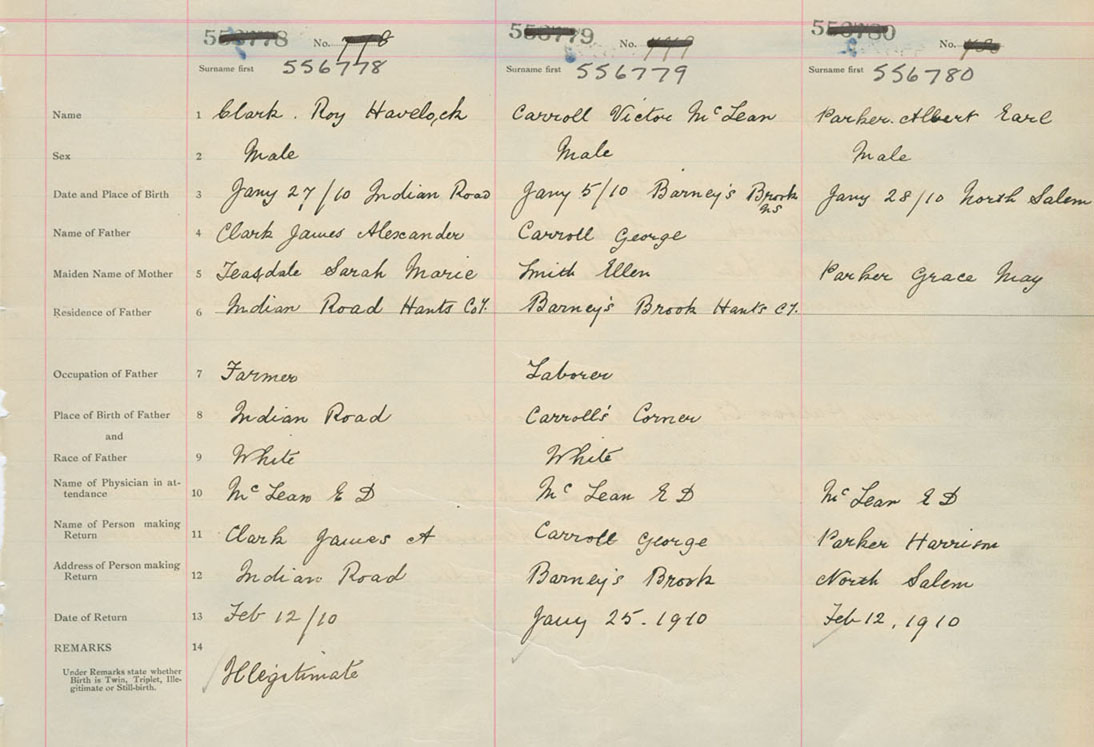 556778 No. 778 556779 No. 779 556780 No. 780
Surname first 556778 Surname first 556779 Surname first 556780
Name 1 Clark. Roy Havelock Carroll Victor McLean Parker. Albert Earl
Sex 2 Male Male Male
Date and Place of Birth 3 Jany 27/10 Indian Road Jany 5/10 Barney's Brook Jany 28/10 North Salem
NS
Name of Father 4 Clark James Alexander Carroll George
Maiden Name of Mother 5 Teasdale Sarah Marie Smith Ellen Parker Grace May
Residence of Father 6 Indian Road Hants Coy. Barney's Brook Hants Cy.
Occupation of Father 7 Farmer Laborer
Place of Birth of Father 8 Indian Road Carroll's Corner
and
Race of Father 9 White White
Name of Physician in at-
tendance 10 Mc Lean E D Mc Lean E D Mc Lean E D
Name of Person making
Return 11 Clark James A Carroll George Parker Harrison
Address of Person making
Return 12 Indian Road Barney's Brook North Salem
Date of Return 13 Feb 12/10 Jany 25-1910 Feb 12, 1910
REMARKS 14
Under Remarks state whether
Birth is Twin, Triplet, Ille-
gitimate or Still-birth.
Illegitimate